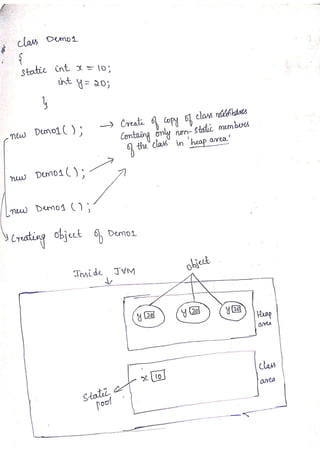 class Demo1
{
static int x = 10;
int y = 20;
}
new Demo1( ); → Create of copy of class
Containg only non-static members
of the class in 'heap area'
new Demo1( );
new Demo1 ( );
Creating object of Demo1
object
Inside JVM
y 20 y 20 y 20
Heap
area
x 10
Class
area
Static
pool